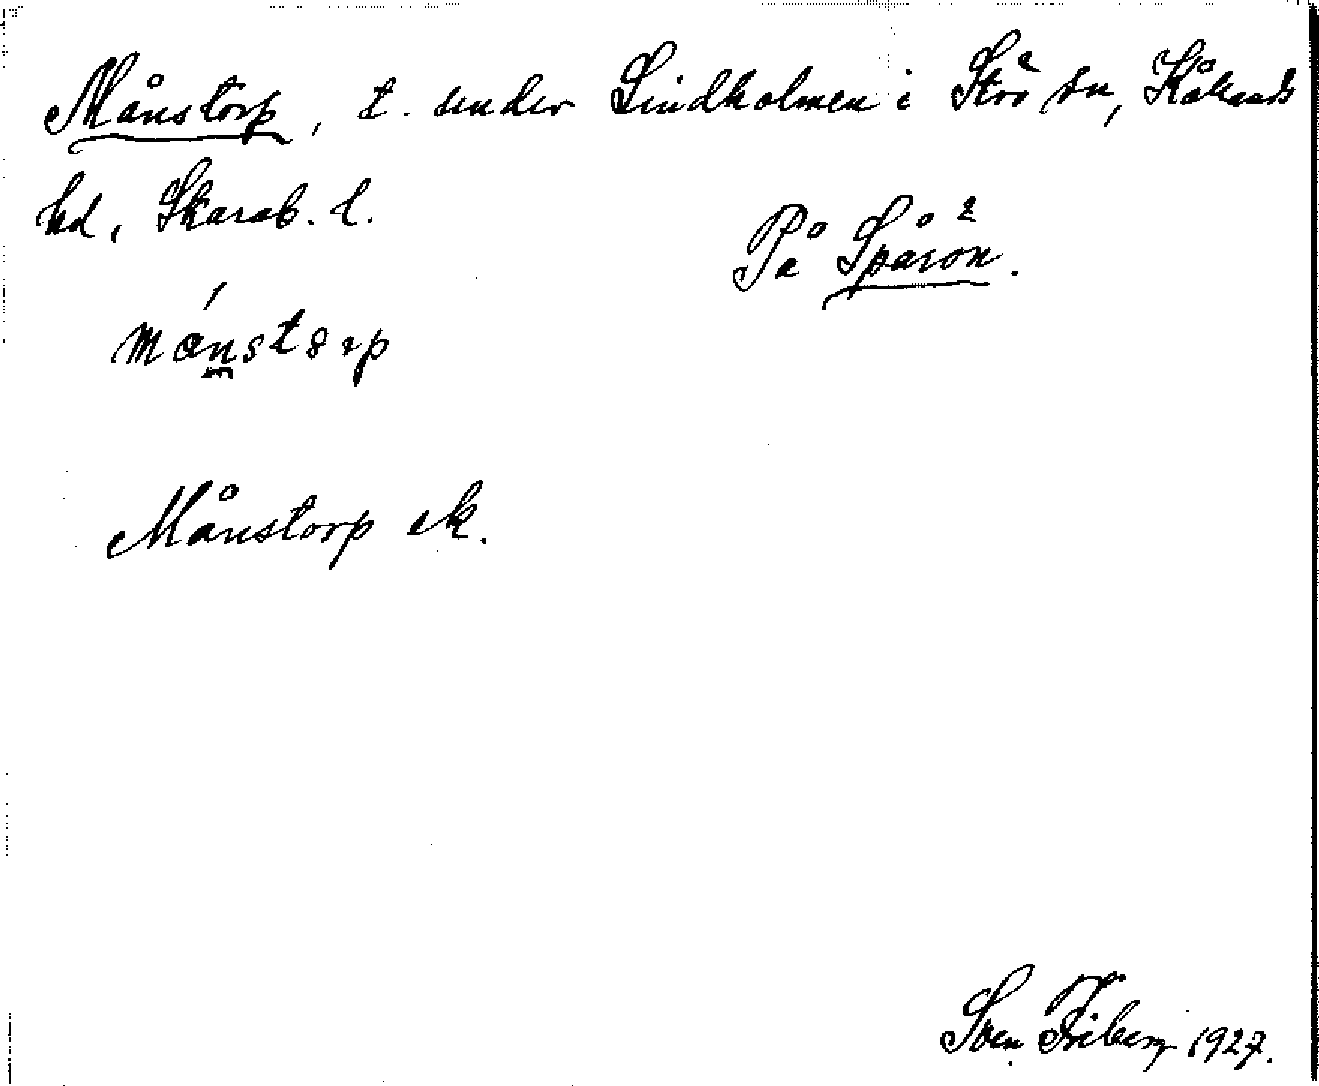 Månstorp, t. under Lindholmen i Strö sn, Kållands
hd, Skarab. l.
På Spårön.
månstorp
Månstorp ek.
Sven Friberg 1927.